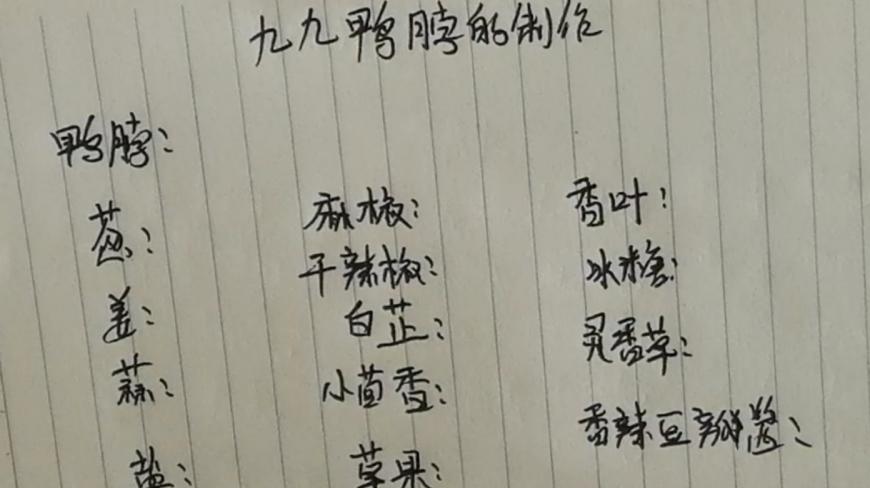 九九鸭脖的制作
鸭脖:
葱:
姜:
蒜:
盐:
麻椒:
干辣椒:
白芷:
小茴香:
草果:
香叶:
冰糖:
灵香草:
香辣豆瓣酱: